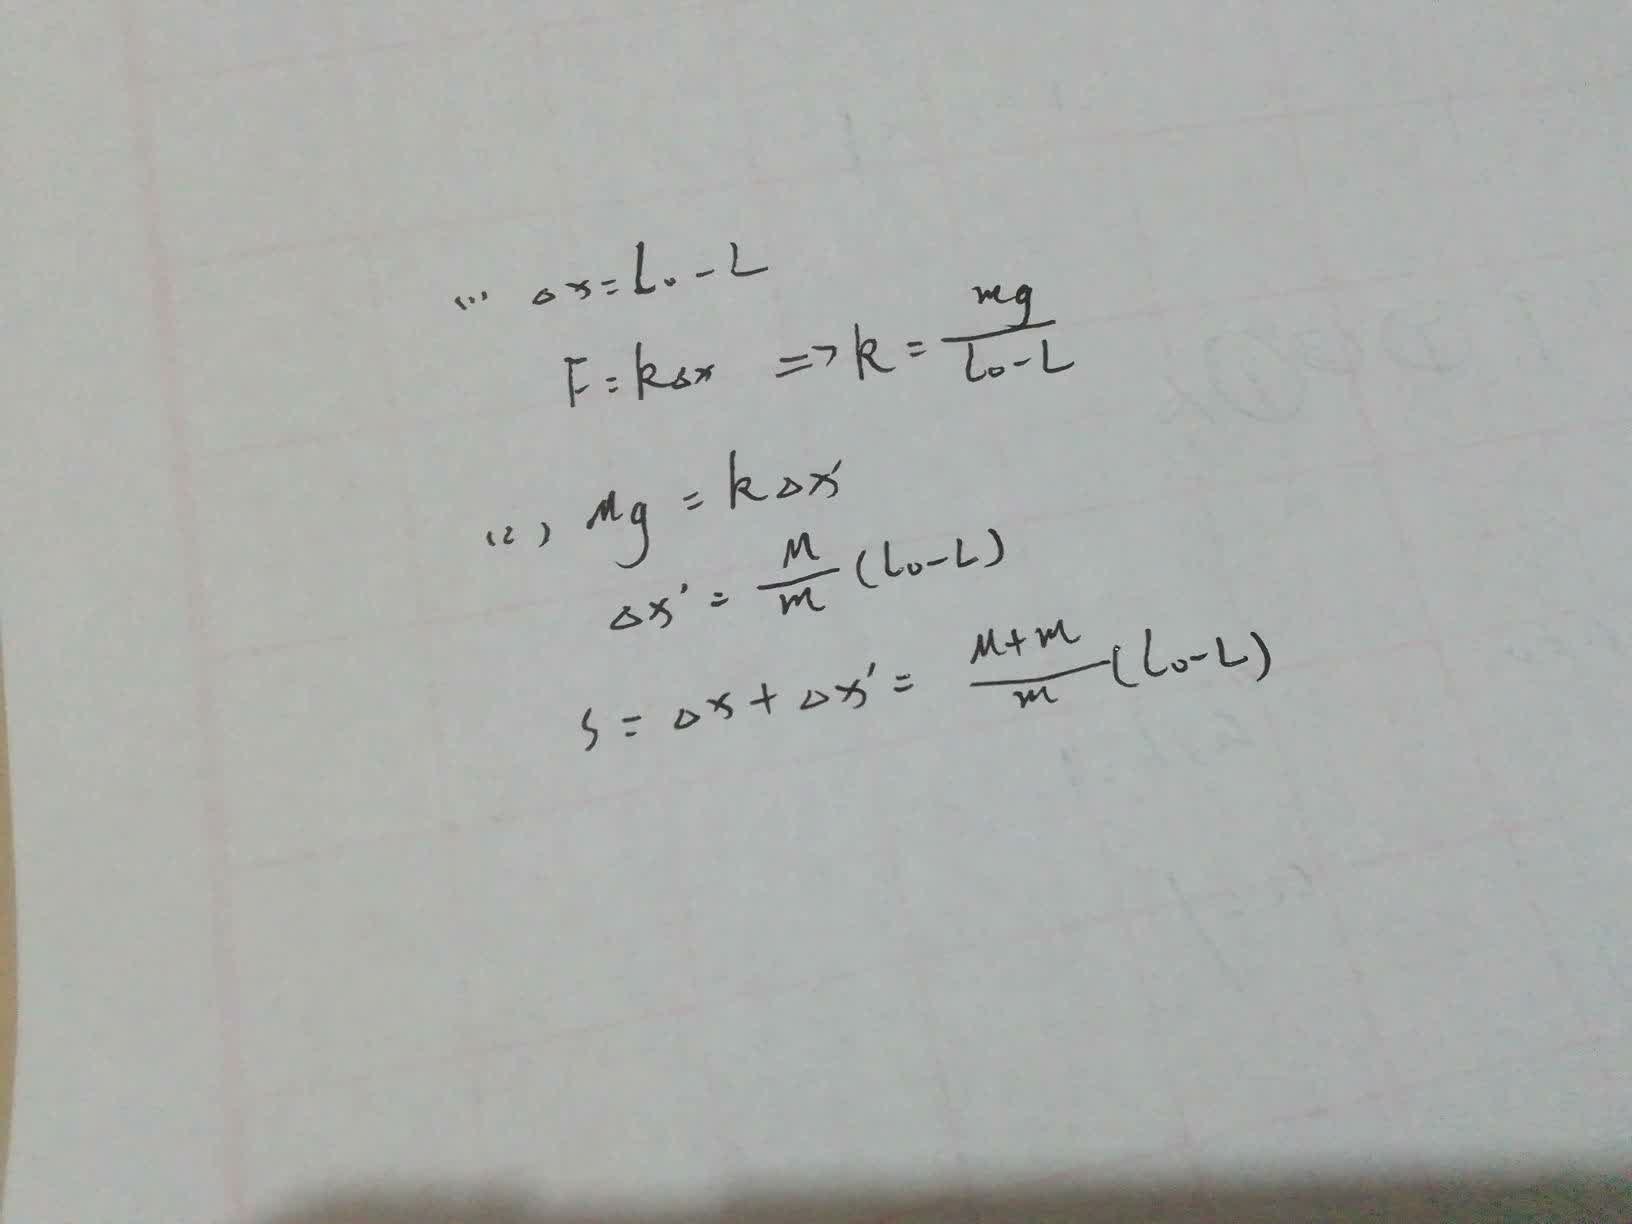 (1) Δx = L₀ - L
F = kΔx => k = mg/(L₀ - L)
(2) Mg = kΔx'
Δx' = M/m (L₀ - L)
S = Δx + Δx' = (M+m)/m (L₀ - L)